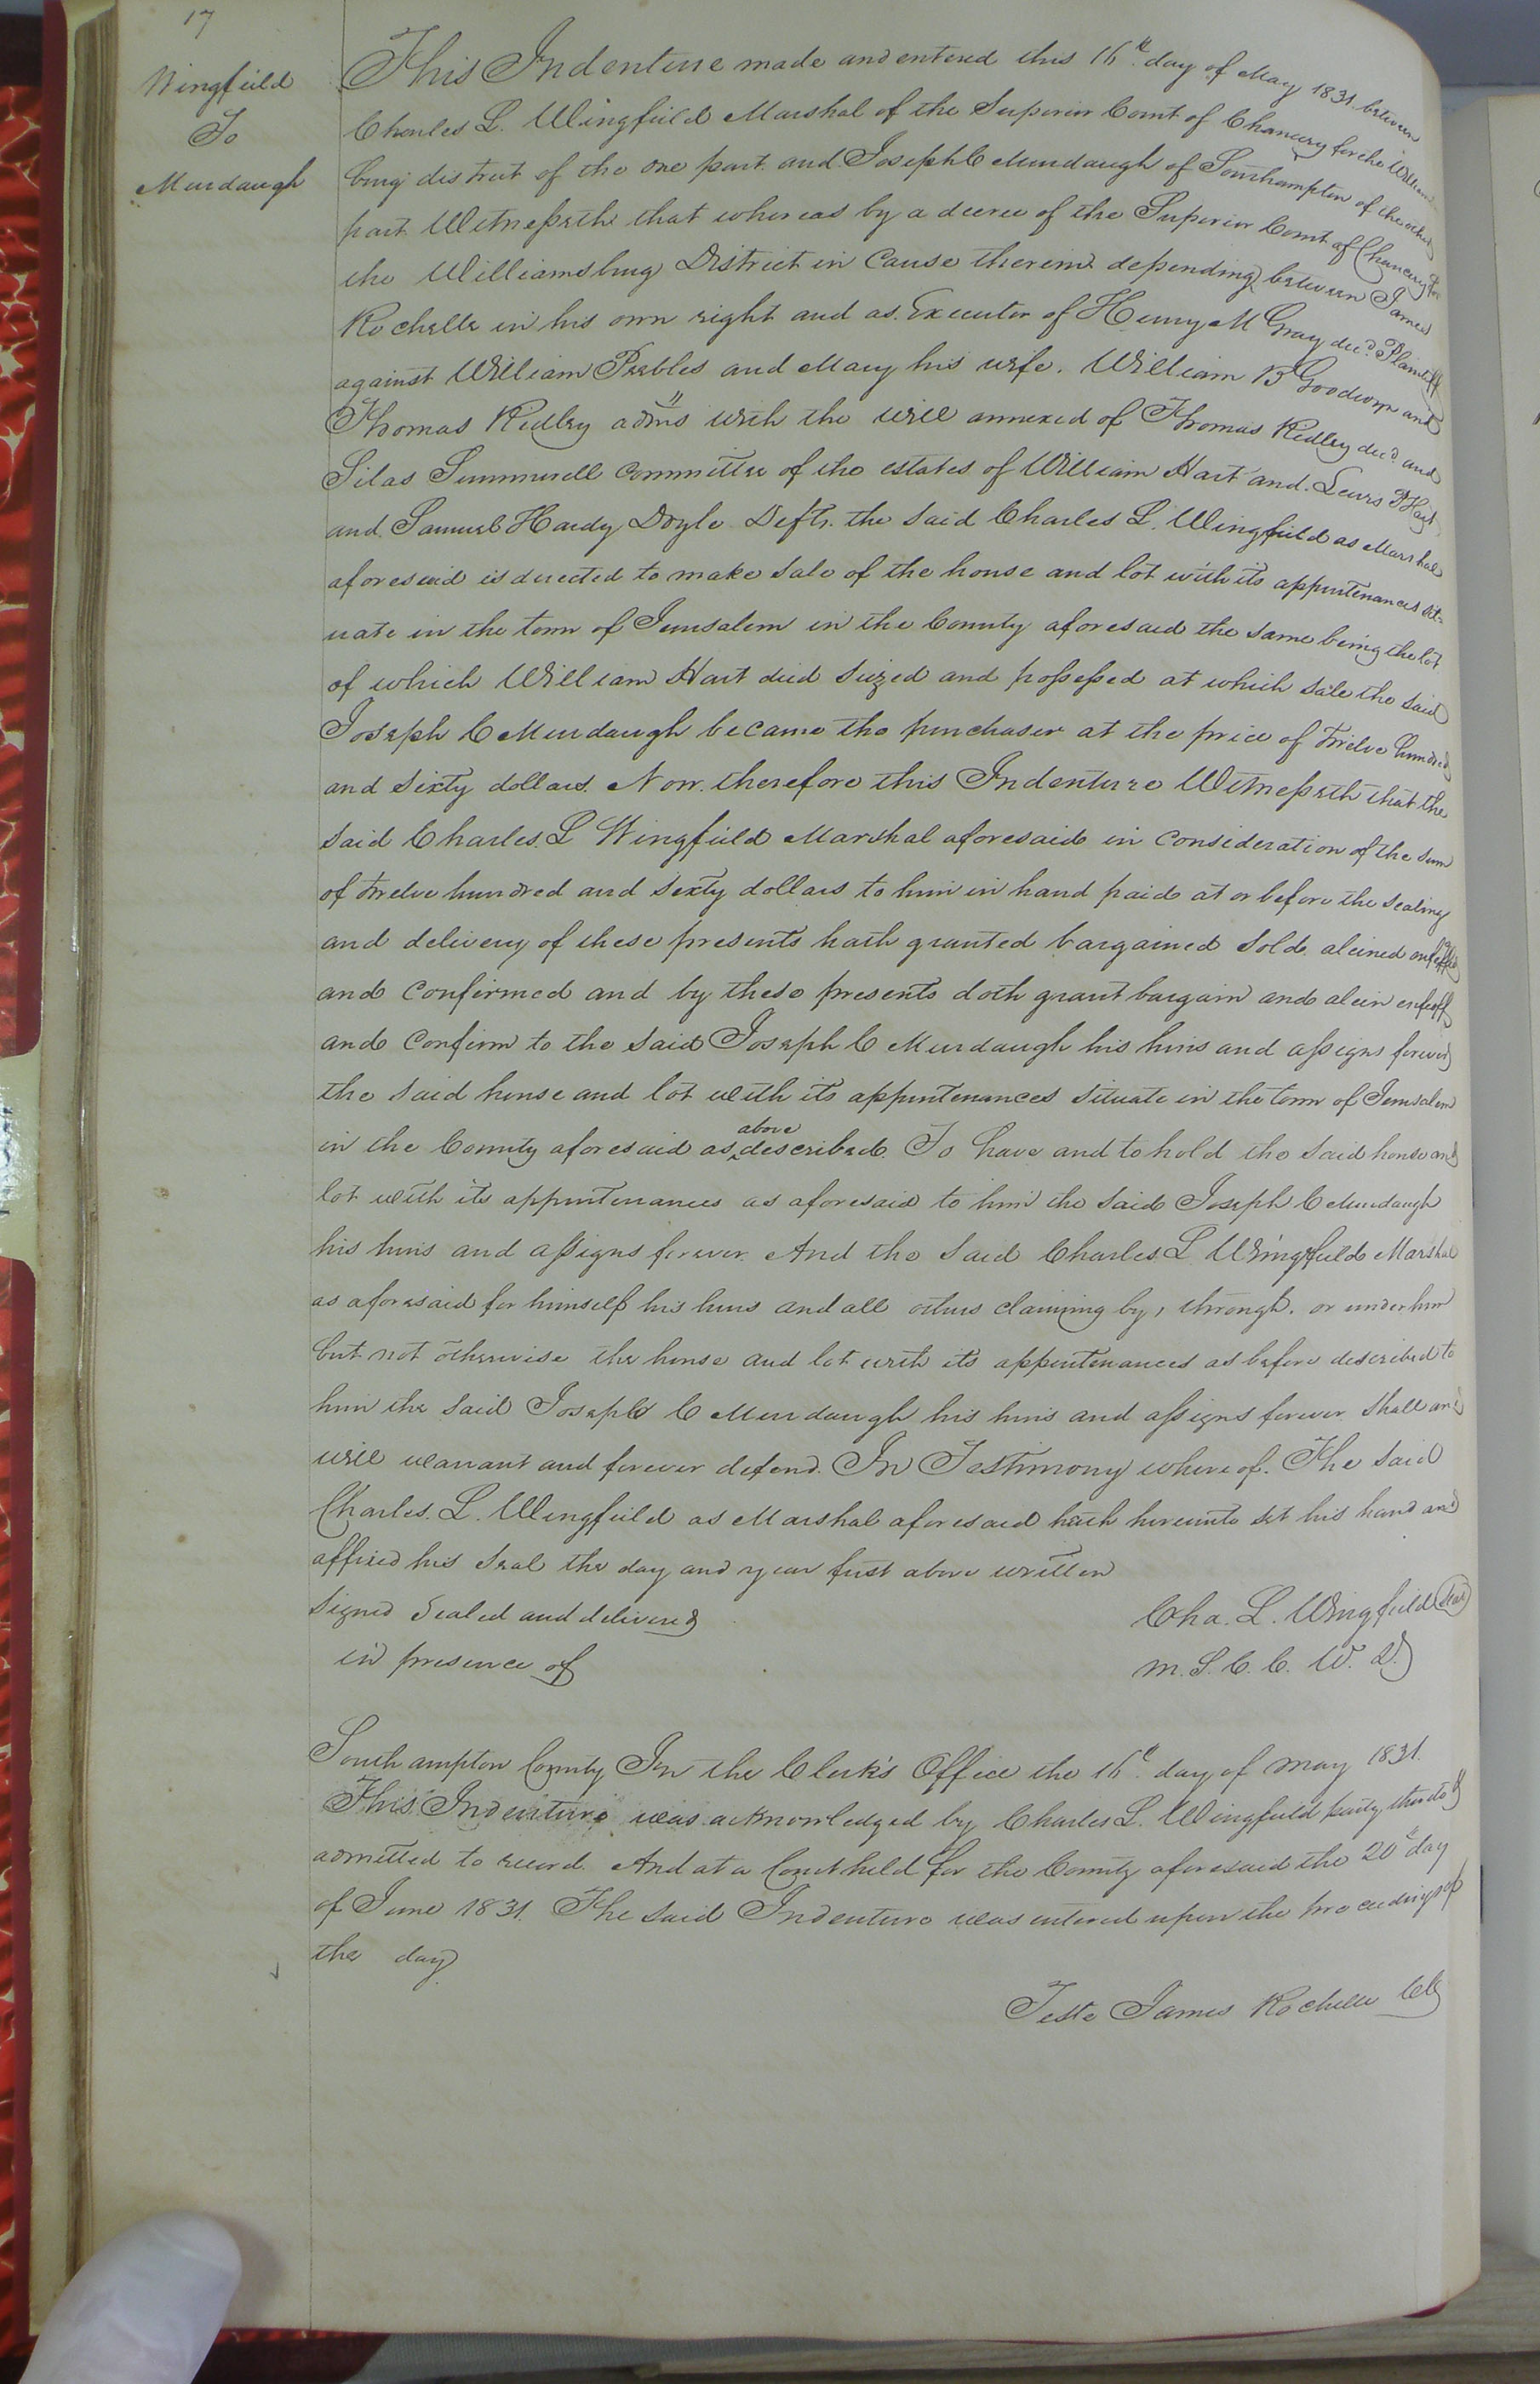 17
Wingfield
To
Murdaugh
This Indenture made and entered this 16th day of May 1831. between
Charles L. Wingfield Marshal of the Superior Court of Chancery for the Williams
burg district of the one part and Joseph C Murdaugh of Southampton of the other
part Witnesseth that whereas by a decree of the Superior Court of Chancery for
the Williamsburg District in Cause therein depending between James
Rochelle in his own right and as Executor of Henry M Gray decd. Plaintiff
against William Peebles and Mary his wife. William B Goodwyn and
Thomas Ridley adms with the will annexed of Thomas Ridley decd. and
Silas Summerell Committee of the estates of William Hart and Hart
and Samuel Hardy Doyle Defts. the said Charles L. Wingfield as Marshal
aforesaid is directed to make sale of the house and lot with its appurtenances sit=
uate in the town of Jerusalem in the County aforesaid the same being the lot
of which William Hart died siezed and possessed at which sale the said
Joseph C Murdaugh became the purchaser at the price of twelve hundred
and sixty dollars. Now. therefore this Indenture Witnesseth that the
said Charles. L Wingfield Marshal aforesaid in consideration of the sum
of twelve hundred and sixty dollars to him in hand paid at or before the sealing
and delivery of these presents hath granted bargained sold. aleined
and confirmed and by these presents doth grant bargain and alein enfeoff
and confirm to the said Joseph C Murdaugh his hirs and assigns forever
the said house and lot with its appurtenances situate in the town of Jerusalem
in the County aforesaid as above described. To have and to hold the said house and
lot with its appurtenances as aforesaid to him the said Joseph C Murdaugh
his hirs and assigns forever And the said Charles L Wingfield Marshal
as aforesaid for himself his hirs and all others claiming by, through. or under him
but not otherwise the house and lot with its appurtenances as before described to
him the said Joseph C Murdaugh his hirs and assigns forever shall and
will warrant and forever defend. In Testimony whereof. The said
Charles. L. Wingfield as Marshal aforesaid hath hereunto set his hand and
affixed his seal the day and year first above written
Signed Sealed and delivered
in presence of
Cha. L. Wingfield Seal
M. S. C. C. W. D.
Southampton County In the Clerk's Office the 16th day of May 1831.
This Indenture was acknowledged by Charles L. Wingfield party thereto &
admitted to record. And at a Court held for the County aforesaid the 20th day
of June 1831. The said Indenture was entered upon the proceedings of
the day
Teste James Rochelle Clk